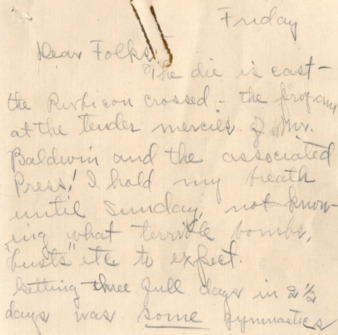 Friday
Dear Folks:
The die is cast -
the Rubicon crossed - the program
at the tender mercies of Mr.
Baldwin and the associated
Press! I hold my breath
until Sunday, not know-
ing what terrible bombs,
"busts" etc to expect.
Getting three full days in 2 1/2
days was some gymnastics